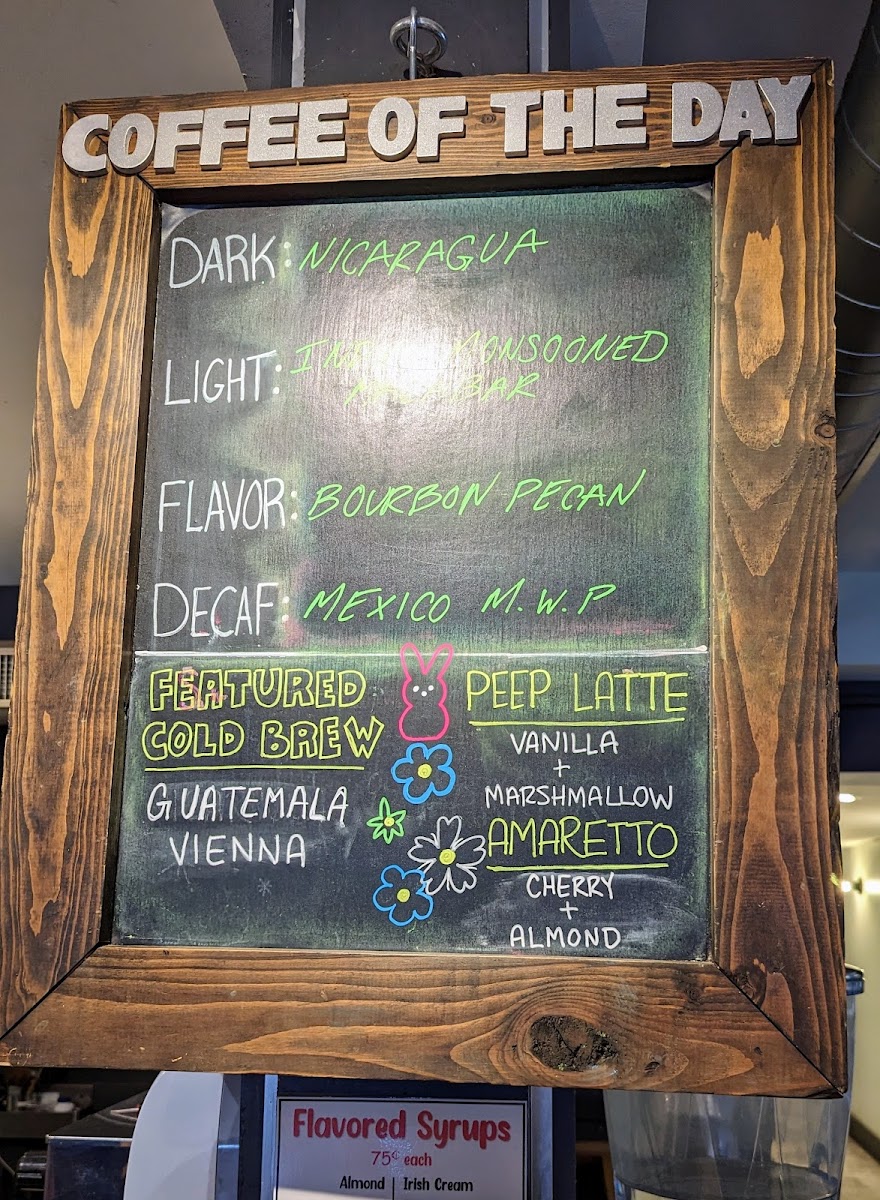 COFFEE OF THE DAY
DARK: NICARAGUA
LIGHT: MONSOONED
FLAVOR: BOURBON PECAN
DECAF: MEXICO M.W.P
FEATURED
COLD BREW
GUATEMALA
VIENNA
PEEP LATTE
VANILLA
+
MARSHMALLOW
AMARETTO
CHERRY
+
ALMOND
Flavored Syrups
75¢ each
Almond | Irish Cream